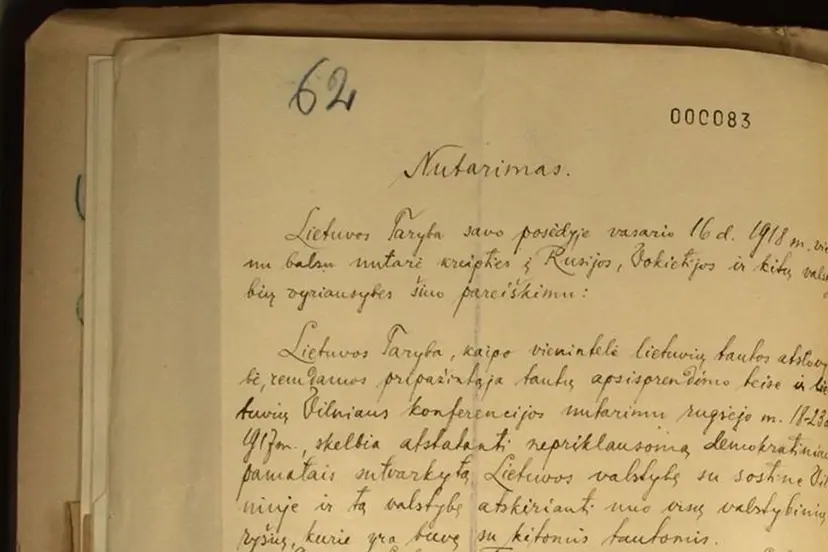 62
000083
Nutarimas.
Lietuvos Taryba savo posėdyje vasario 16 d. 1918 m. vie
nu balsu nutarė kreipties į Rusijos, Vokietijos ir kitų valsty
bių vyriausybes šiuo pareiškimu:
Lietuvos Taryba, kaipo vienintelė lietuvių tautos atstovy
bė, remdamos pripažintąja tautų apsisprendimo teise ir lie
tuvių Vilniaus konferencijos nutarimu rugsėjo m. 18-23 d
1917 m., skelbia atstatanti nepriklausomą demokratiniais
pamatais sutvarkytą Lietuvos valstybę su sostine Vil
niuje ir tą valstybę atskirianti nuo visų valstybinių
ryšių, kurie yra buvę su kitomis tautomis.